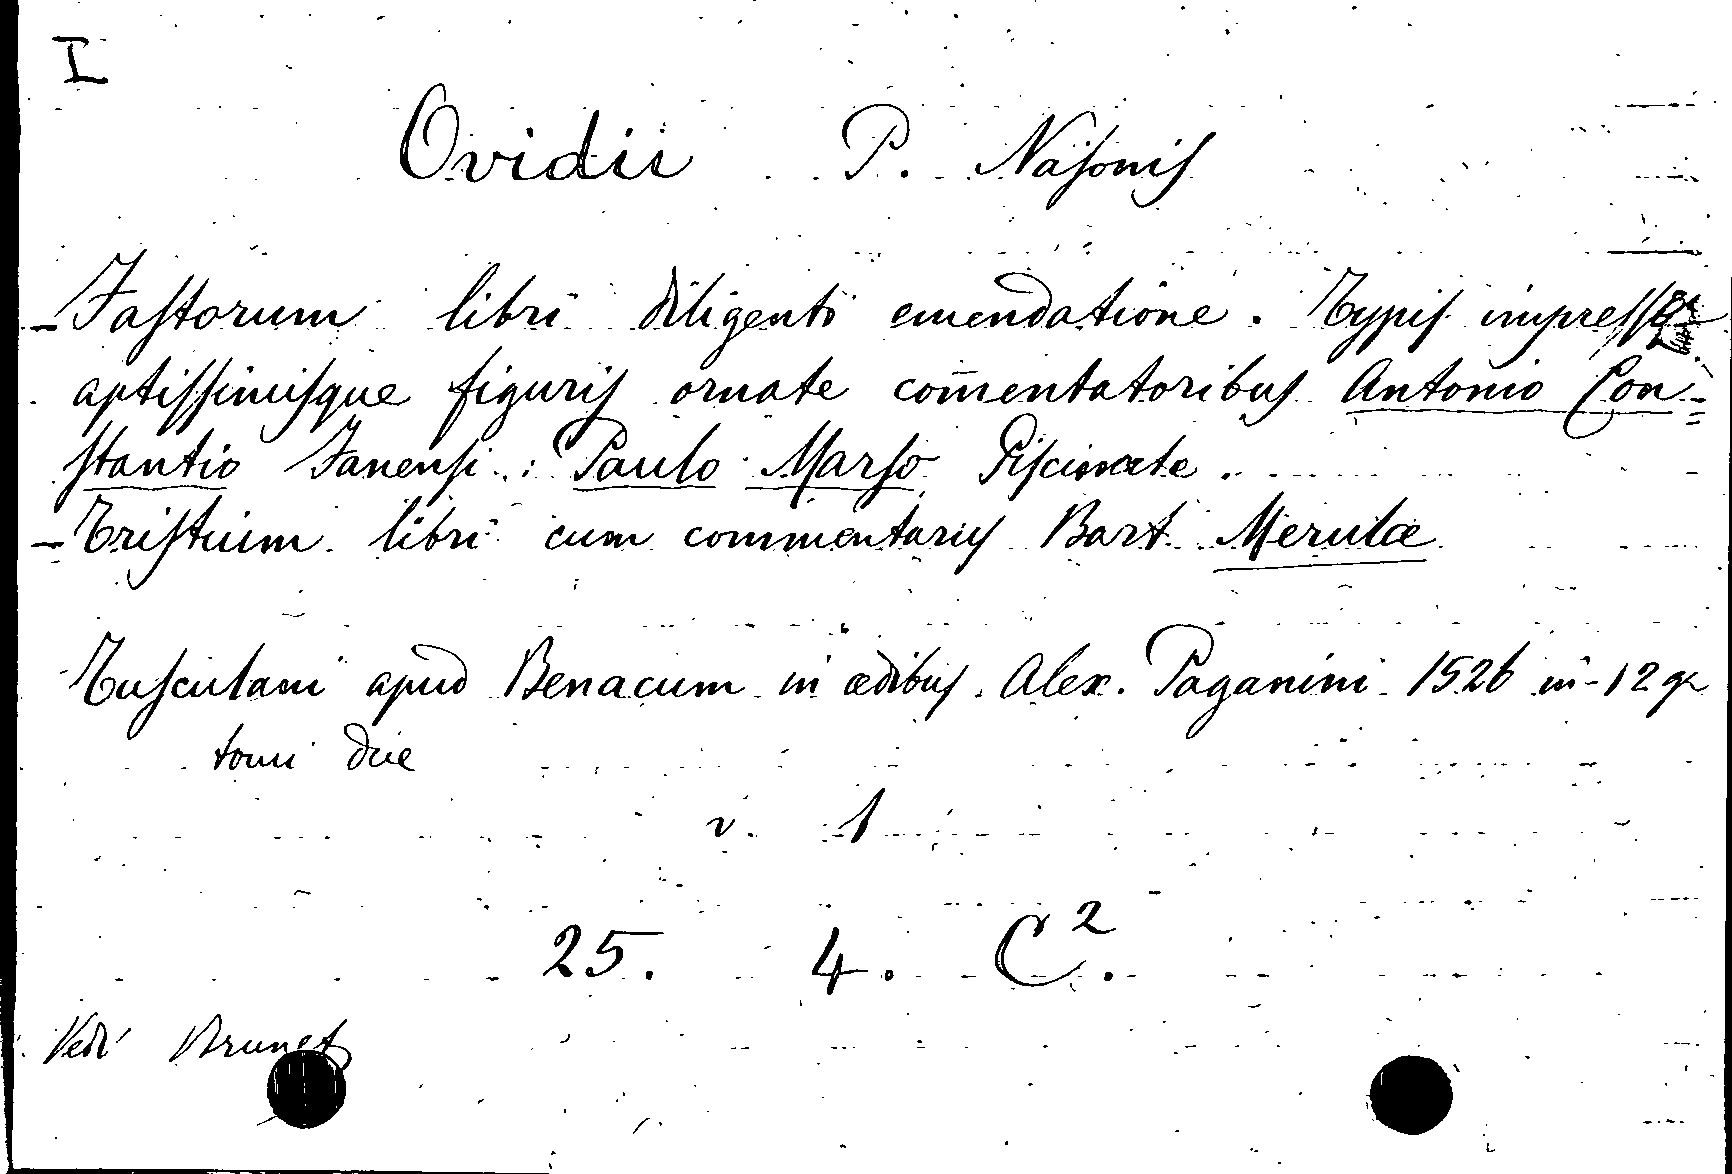 I
Ovidii P. Nasonis
- Fastorum libri diligenti emendatione. Typis impressa
aptissimisque figuris ornate com̄entatoribus Antonio Con=
stantio Fanensi : Paulo Marso Piscinate.
- Tristium libri cum commentariis Bart. Merulæ
Tusculani apud Benacum in ædibus Alex. Paganini 1526 in-12 gr
tomi due
v. 1
25. 4. C².
Vedi Brunet